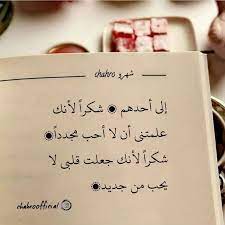 chahro شهرو
إلى أحدهم ◉ شكراً لأنك
علمتني أن لا أحب مجدداً◉
شكراً لأنك جعلت قلبي لا
يحب من جديد◉
chahroofficial